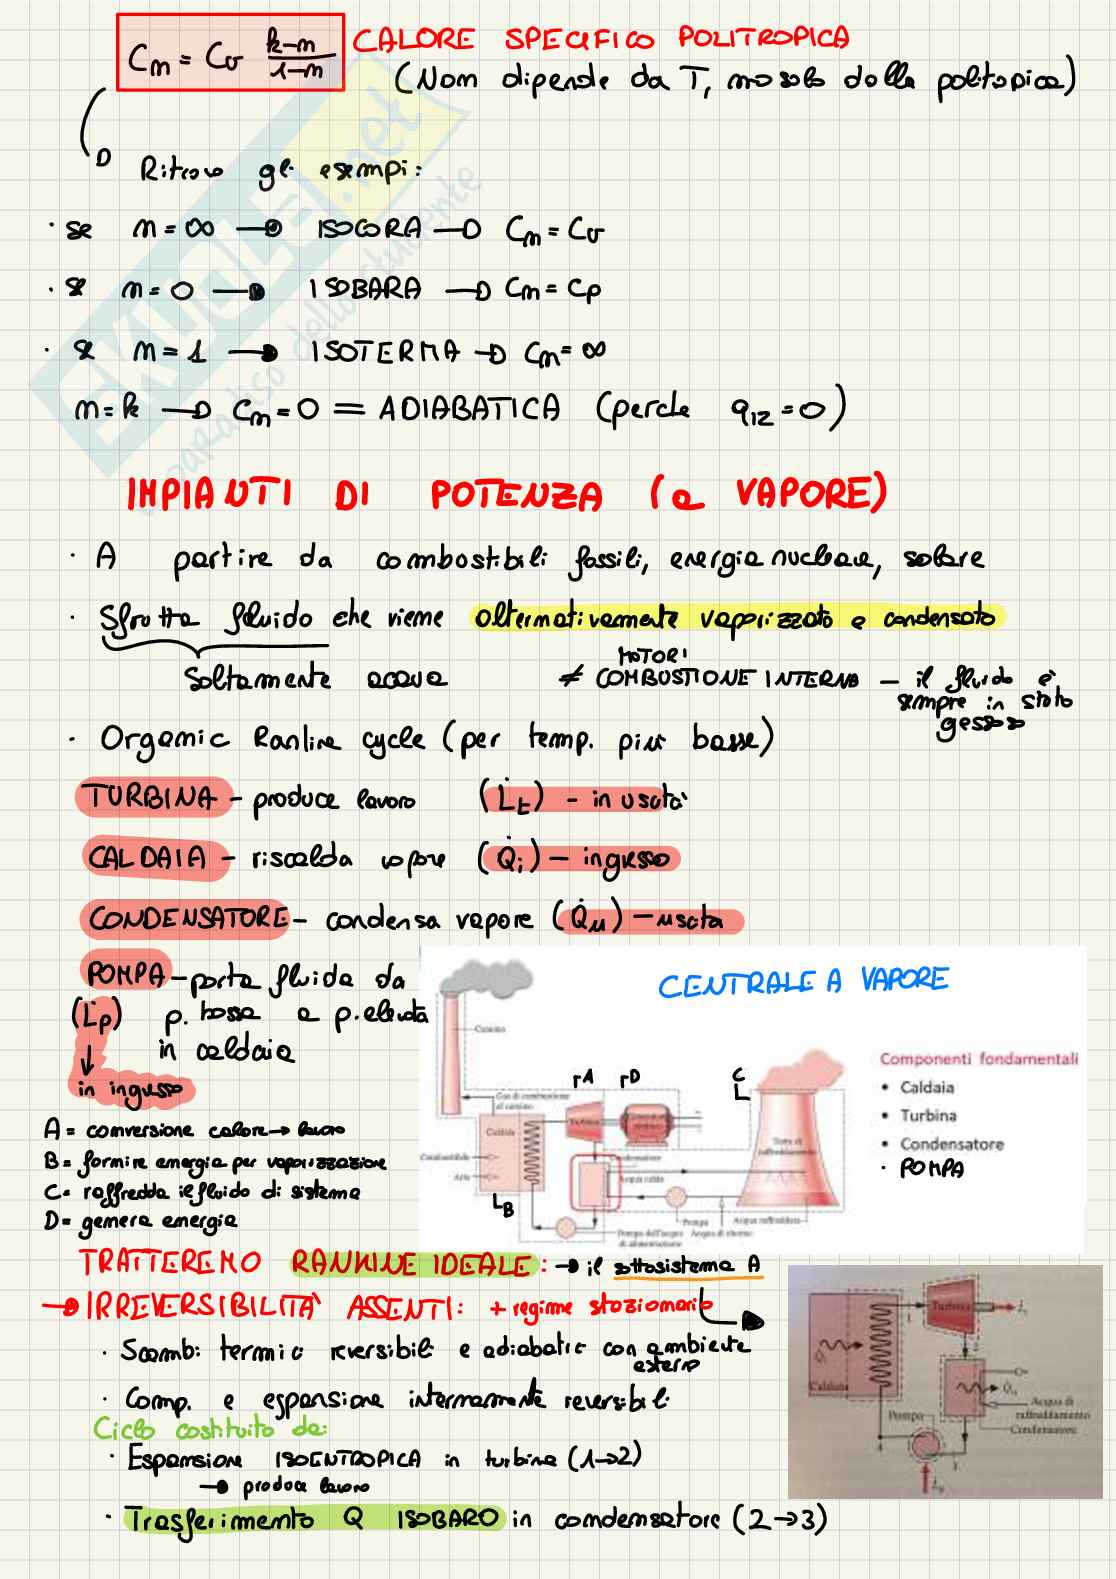 Cm = Cv k-n / 1-n CALORE SPECIFICO POLITROPICA
(Non dipende da T, ma solo dalla politropica)
Ritrovo gli esempi:
· se n = ∞ → ISOCORA → Cm = Cv
· se n = 0 → ISOBARA → Cm = Cp
· se n = 1 → ISOTERMA → Cm = ∞
n = k → Cm = 0 = ADIABATICA (perche q12 = 0)
IMPIANTI DI POTENZA (a VAPORE)
· A partire da combustibili fossili, energia nucleare, solare
· Sfrutta fluido che viene alternativamente vaporizzato e condensato
Solitamente acqua
≠ MOTORI COMBUSTIONE INTERNA – il fluido è
sempre in stato
gassoso
· Organic Rankine cycle (per temp. più basse)
TURBINA – produce lavoro (L̇t) – in uscita
CALDAIA – riscalda vapore (Q̇i) – ingresso
CONDENSATORE – condensa vapore (Q̇u) – uscita
POMPA – porta fluido da
(L̇p) p. bassa a p. elevata
in caldaia
↓
in ingresso
CENTRALE A VAPORE
Camino
Gas di combustione
al camino
Caldaia
Combustibile
Aria
Turbina
A
D
C
B
Condensatore
Acqua calda
Torre di
raffreddamento
Pompa
Acqua raffreddata
Pompa dell'acqua
di alimentazione
Acqua di ritorno
Componenti fondamentali
• Caldaia
• Turbina
• Condensatore
· POMPA
A = conversione calore → lavoro
B = fornire energia per vaporizzazione
C = raffredda il fluido di sistema
D = genera energia
TRATTEREMO RANKINE IDEALE: → il sottosistema A
→ IRREVERSIBILITÀ ASSENTI: + regime stazionario
· Scambi termici reversibili e adiabatic con ambiente
esterno
· Comp. e espansione internamente reversibili
Ciclo costituito da:
· Espansione ISOENTROPICA in turbina (1→2)
→ produce lavoro
· Trasferimento Q ISOBARO in condensatore (2→3)
Turbina
Caldaia
Pompa
Acqua di
raffreddamento
Condensatore
SKUOLA.net
il paradiso dello studente